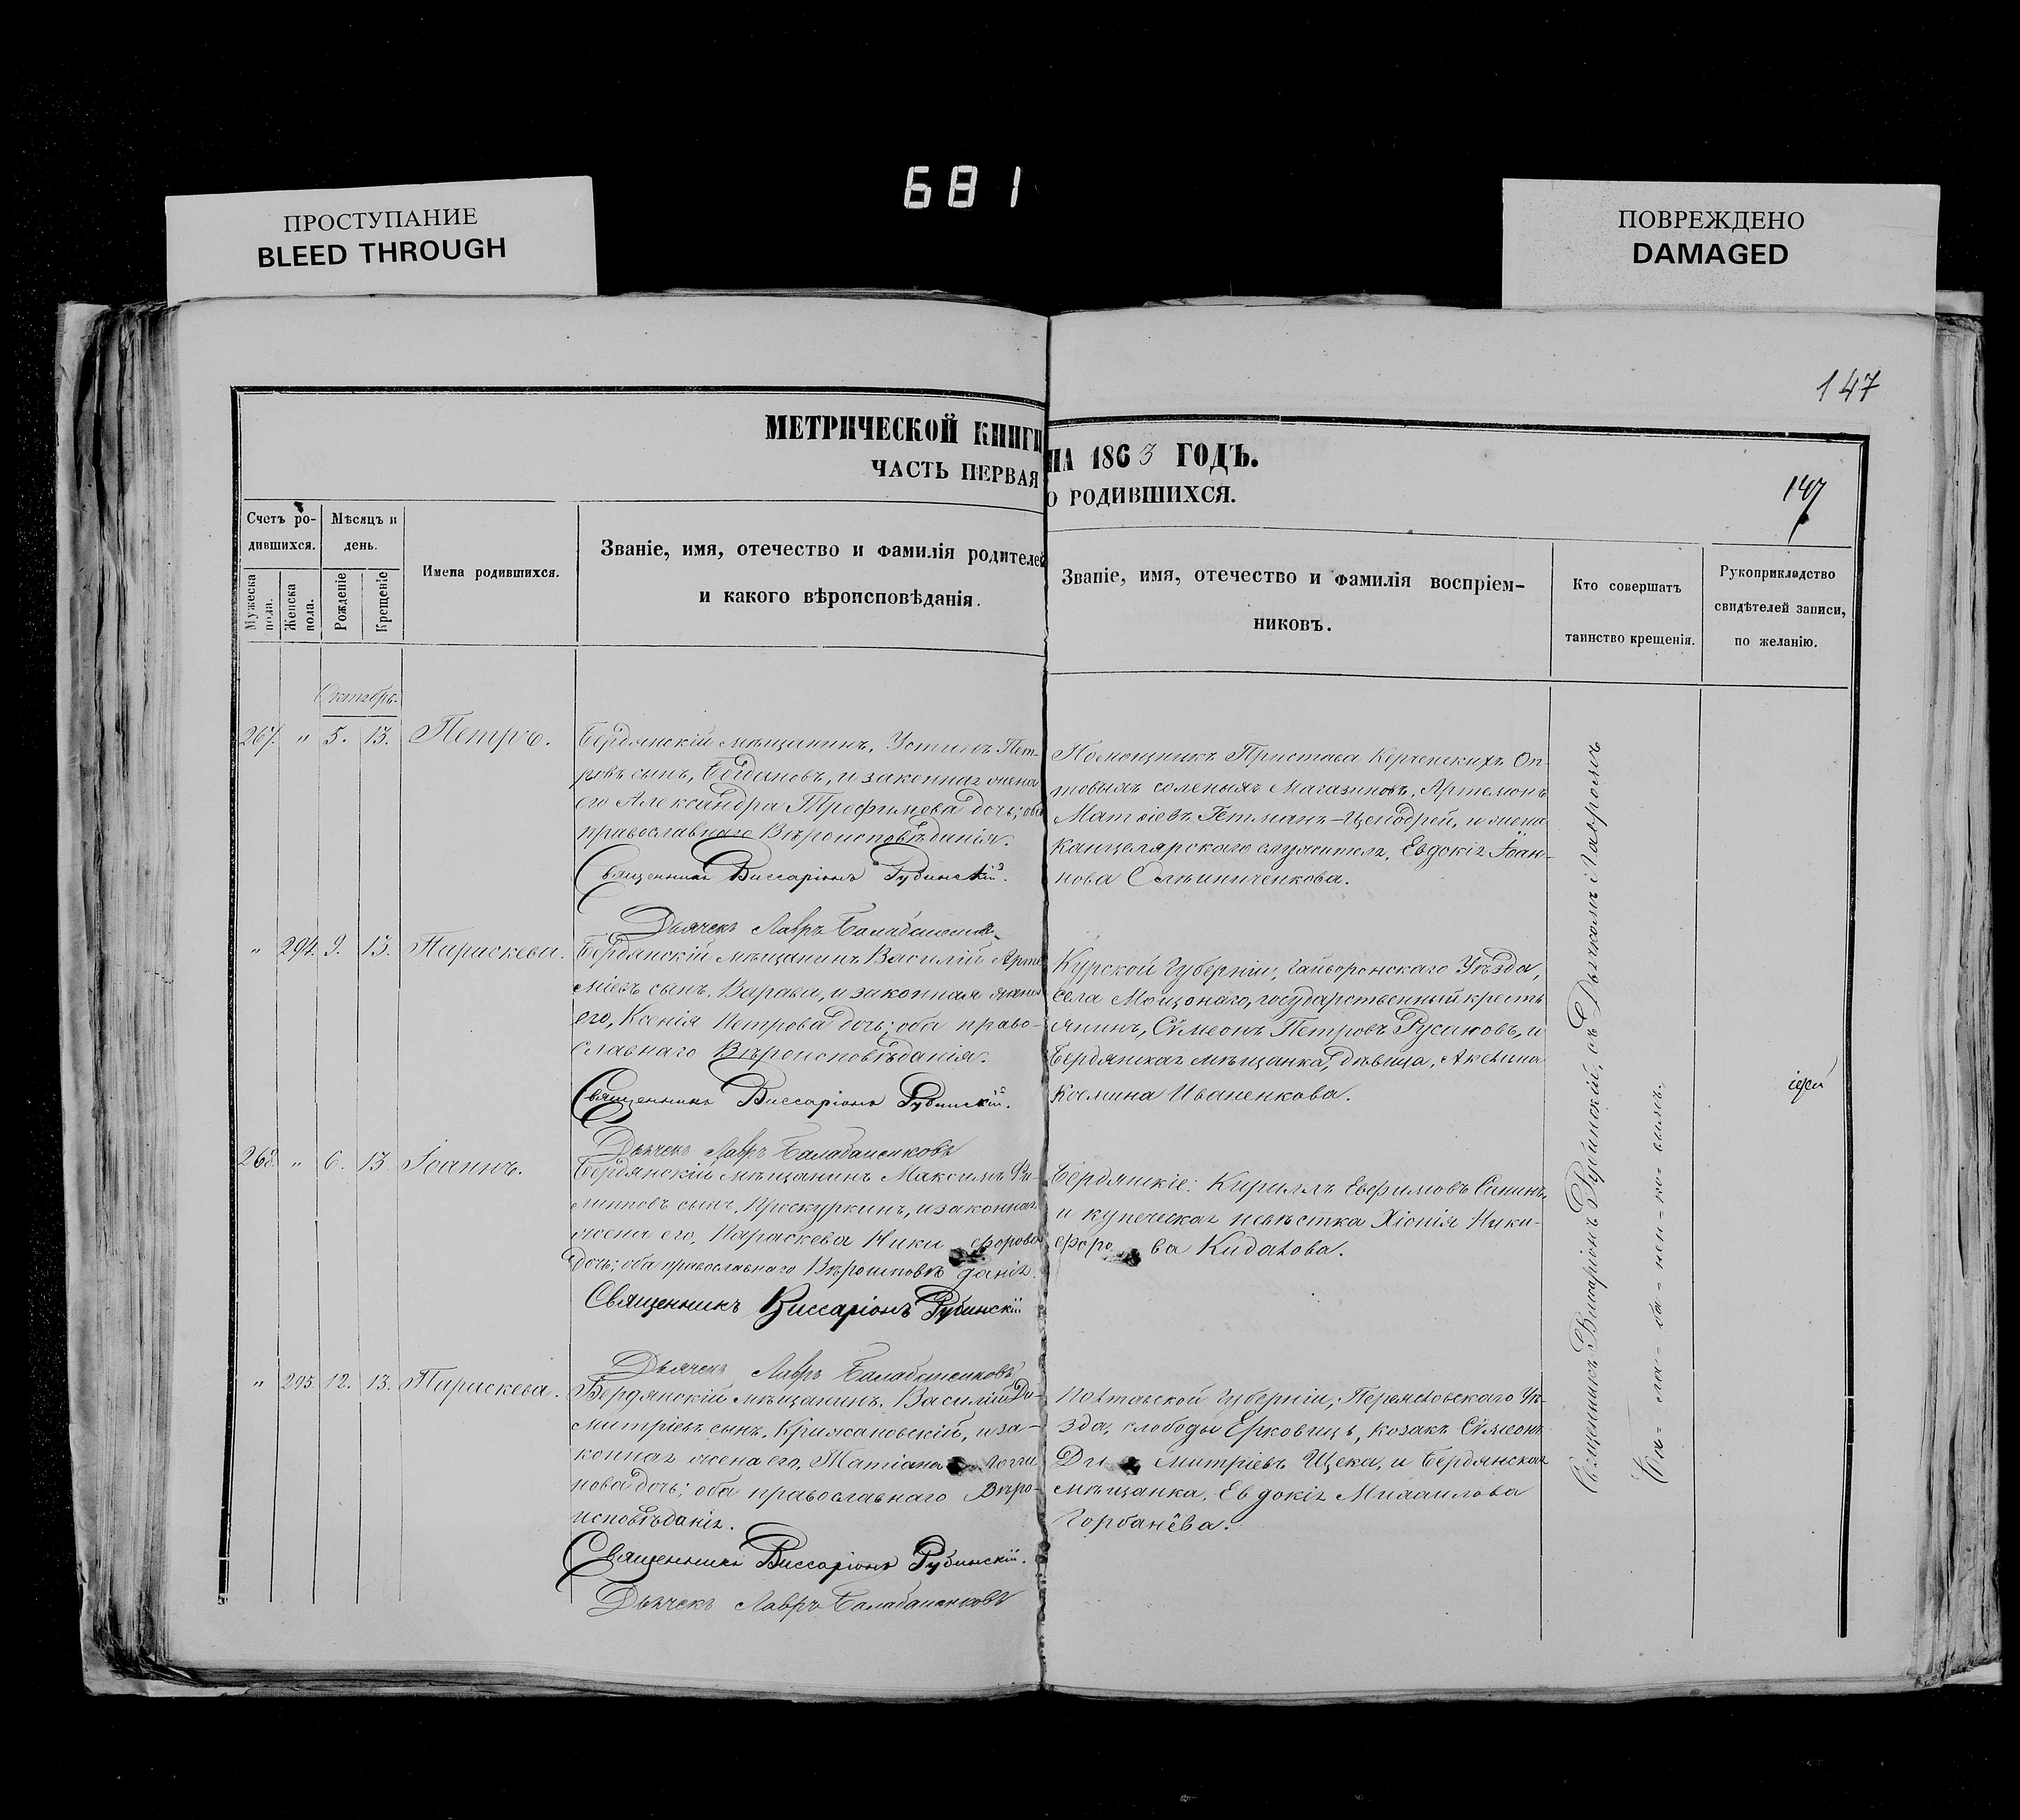 681
ПРОСТУПАНИЕ
BLEED THROUGH
ПОВРЕЖДЕНО
DAMAGED
147
МЕТРИЧЕСКОЙ КНИГИ НА 1863 ГОДЪ.
ЧАСТЬ ПЕРВАЯ О РОДИВШИХСЯ.
147
Счетъ ро-
дившихся.
Мужеска пола.
Женска пола.
Мѣсяцъ и
день.
Рожденіе
Крещеніе
Имена родившихся.
Званіе, имя, отечество и фамилія родителей
и какого вѣроисповѣданія.
Званіе, имя, отечество и фамилія воспріем-
никовъ.
Кто совершатъ
таинство крещенія.
Рукоприкладство
свидѣтелей записи,
по желанію.
Октябрь.
267. " 5. 13. Петръ.
Бердянскій мѣщанинъ, Устинъ Пет-
ровъ сынъ, Богдановъ, и законная жена
его Александра Трофимова дочь; оба
православнаго Вѣроисповѣданія.
Священникъ Виссаріонъ Рубинскій.
Дьячекъ Лавръ
Помощникъ Пристава Керченскихъ Оп
товыхъ соленыхъ Магазиновъ, Артемонъ
Матѳіевъ Гетманъ-
Канцелярскаго служителя, Евдокія Іоан-
нова
" 294. 9. 13. Параскева.
Бердянскій мѣщанинъ Василій Арте
міевъ сынъ, Варава, и законная жена
его, Ксенія Петрова дочь; оба право-
славнаго Вѣроисповѣданія.
Священникъ Виссаріонъ Рубинскій.
Дьячекъ Лавръ Балабаненковъ
Курской Губерніи, Гайворонскаго Уѣзда,
села Мощонаго, государственный кресть
янинъ, Сѵмеонъ Петровъ Русиновъ, и
Бердянская мѣщанка, дѣвица, Акилина
Космина Иваненкова.
іерей
268. " 6. 13. Іоаннъ.
Бердянскій мѣщанинъ Максимъ Фи-
липповъ сынъ, Проскуркинъ, и законная
жена его, Параскева Ники форова
дочь; оба православнаго Вѣроисповѣ данія.
Священникъ Виссаріонъ Рубинскій
Дьячекъ Лавръ Балабаненковъ
Бердянскіе: Кириллъ Евфимовъ Сининъ,
и купеческая невѣстка Хіонія Ники-
форо ва Кидалова.
" 295. 12. 13. Параскева.
Бердянскій мѣщанинъ, Василій Ди-
митріевъ сынъ, Крижановскій, и за-
конная жена его, Татіана
нова дочь; оба православнаго Вѣро-
исповѣданія.
Священникъ Виссаріонъ Рубинскій.
Дьячекъ Лавръ Балабаненковъ
Полтавской Губерніи, Переяславскаго Уѣ-
зда, слободы Ерковицъ, козакъ Сѵмеонъ
Ди митріевъ Щека, и Бердянская
мѣщанка, Евдокія Михаилова
Горбанёва.
Священникъ Виссаріонъ Рубинскій, съ Дьячкомъ Лавромъ
Ба-ла-ба-нен-ко-вымъ.